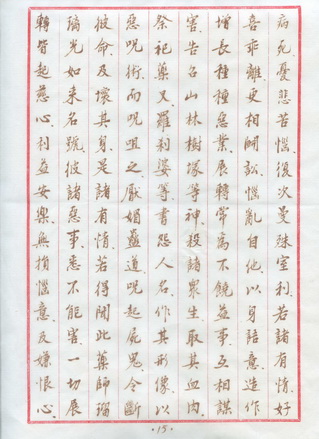 病死憂悲苦惱復次曼殊室利若諸有情好
喜乖離更相鬬訟惱亂自他以身語意造作
增長種種惡業展轉常為不饒益事互相謀
害告召山林樹塚等神殺諸眾生取其血肉
祭祀藥叉羅剎婆等書怨人名作其形像以
惡咒術而咒咀之厭媚蠱道咒起屍鬼令斷
彼命及壞其身是諸有情若得聞此藥師瑠
璃光如來名號彼諸惡事悉不能害一切展
轉皆起慈心利益安樂無損惱意及嫌恨心
·15·